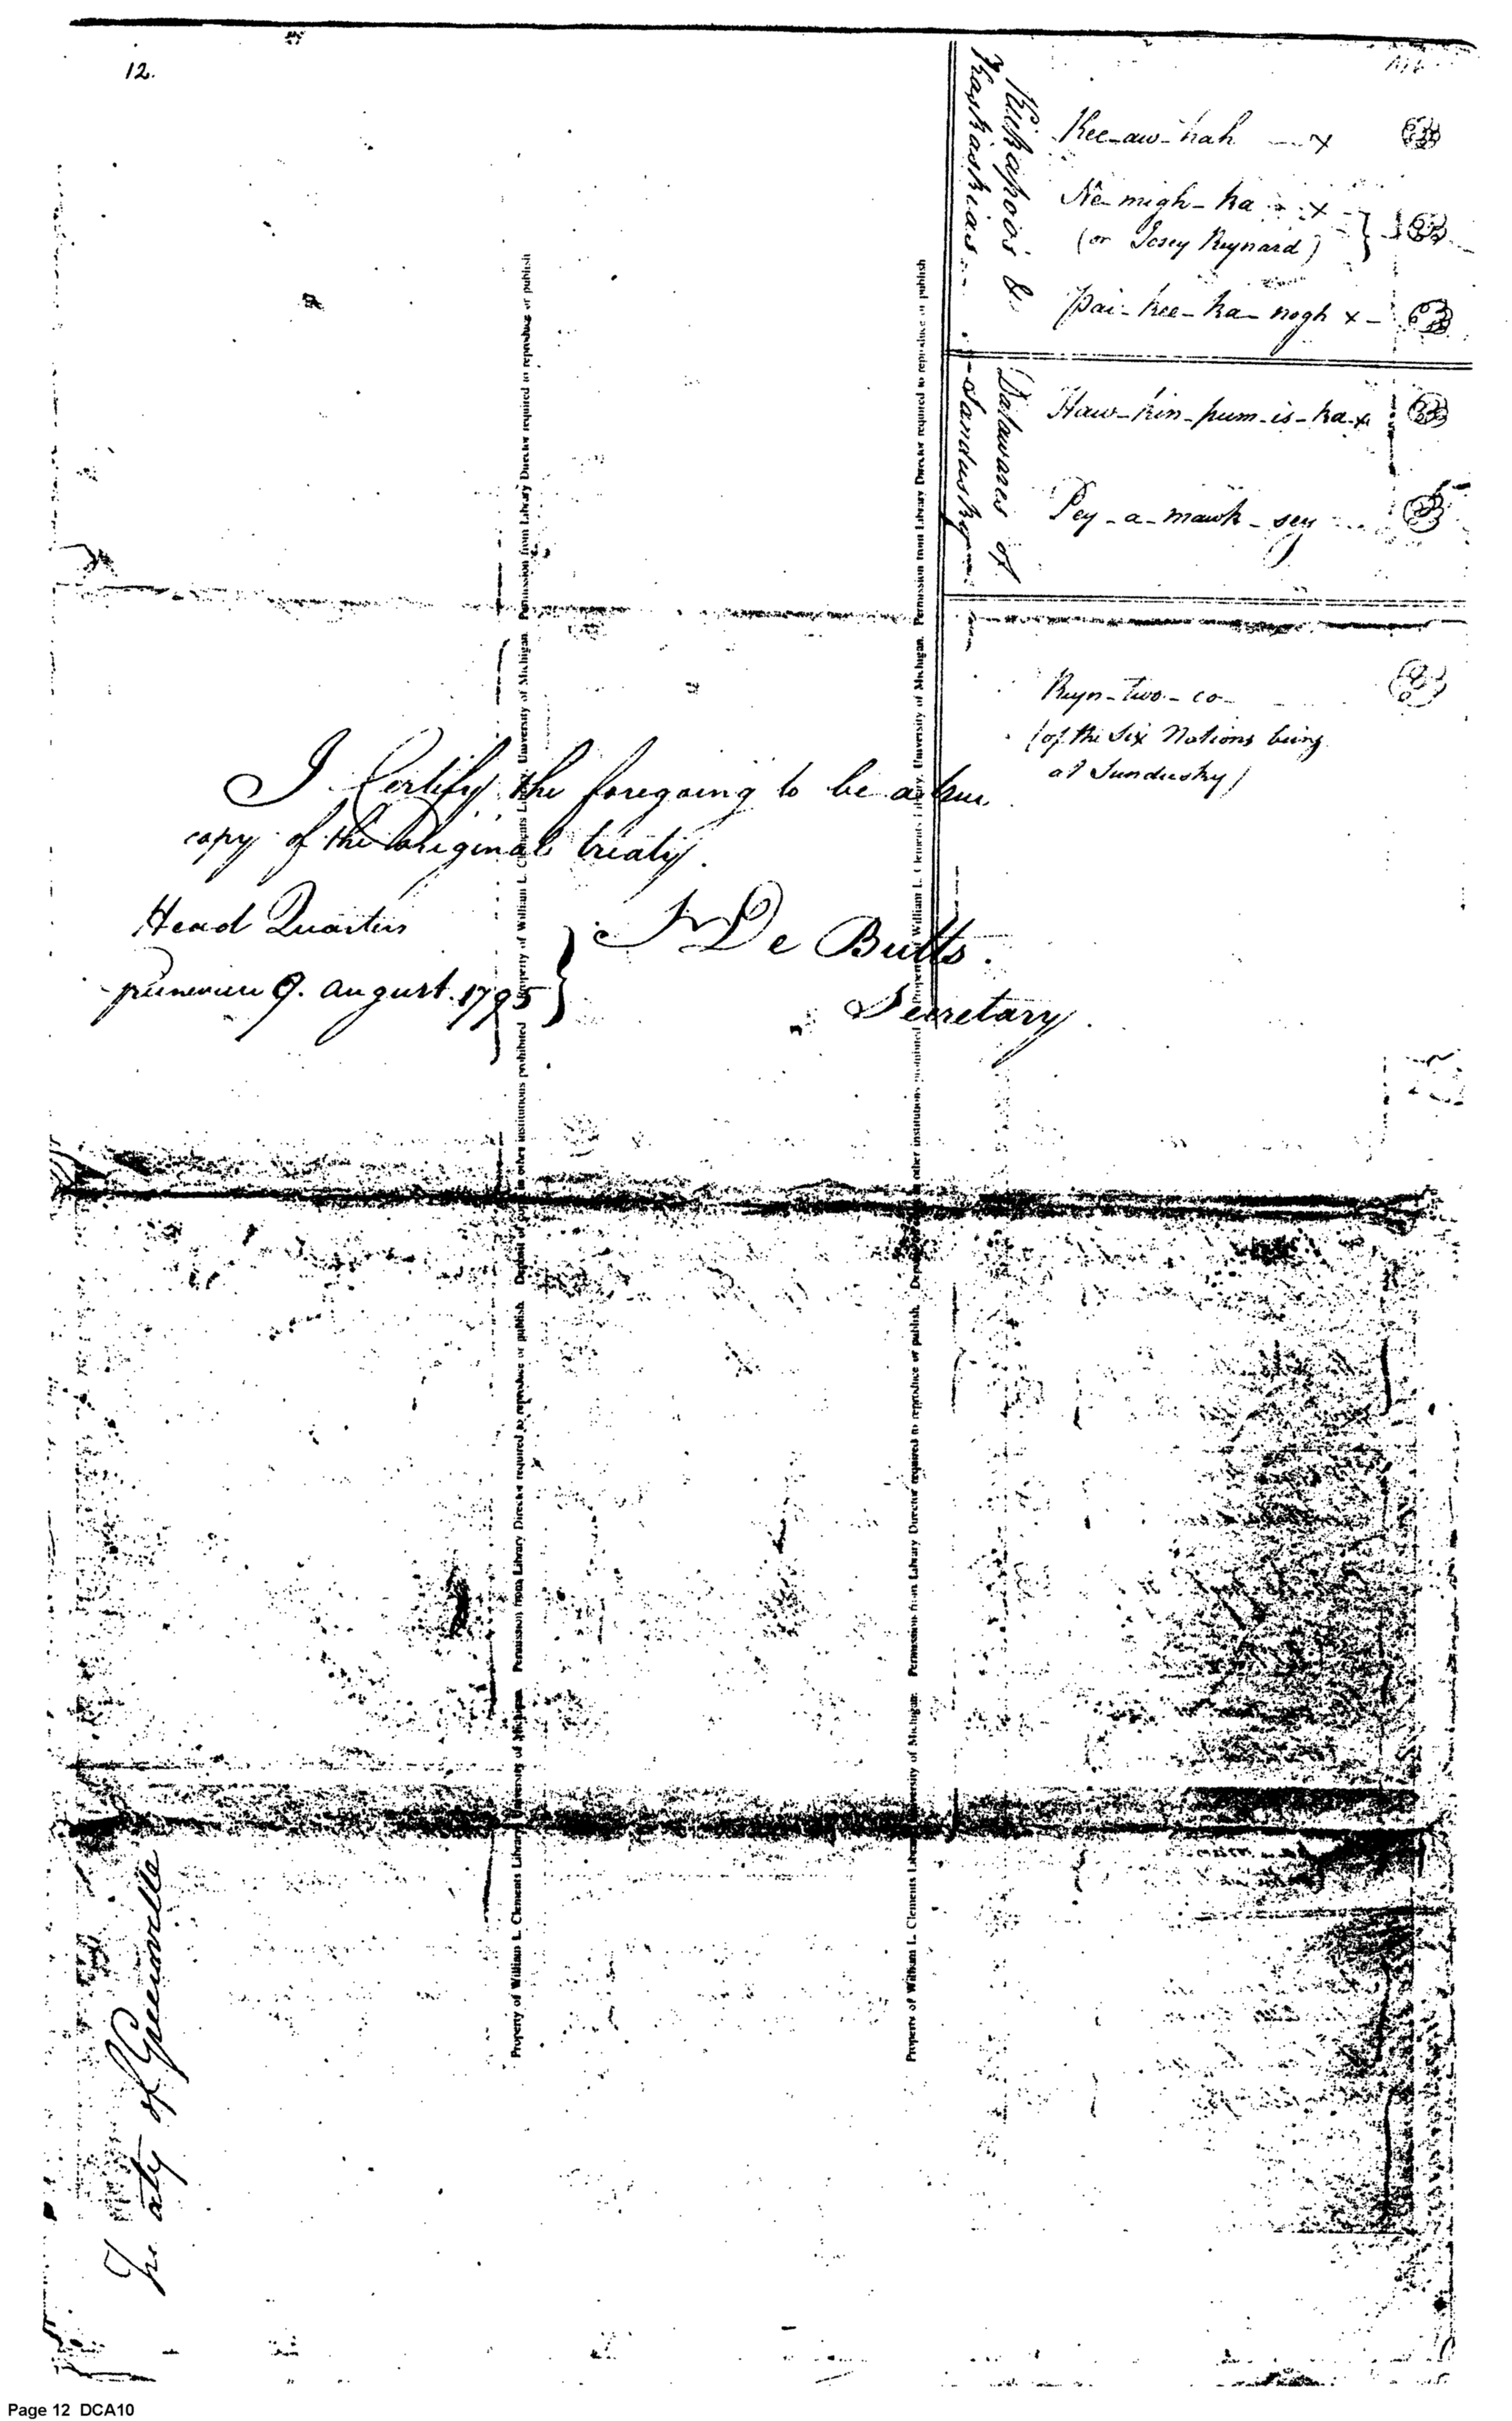 12.
Kickapoos &
Kaskaskias
Kee-aw-hah x
Ne-migh-ka x
(or Josey Reynard)
Pai-kee-ka-nogh x
Delawares of
Sandusky
Haw-kin-pum-is-ka x
Pey-a-mawk-sey
Reyn-two-co
(of the Six Nations being
at Sandusky)
I Certify the foregoing to be a true
copy of the Original treaty.
Head Quarters
9. august. 1795
De Butts.
Secretary.
Treaty of Greenville
Property of William L. Clements Library, University of Michigan. Permission from Library Director required to reproduce or publish. Deposit of copy in other institutions prohibited
Property of William L. Clements Library, University of Michigan. Permission from Library Director required to reproduce or publish
Property of William L. Clements Library, University of Michigan. Permission from Library Director required to reproduce or publish. Deposit of copy in other institutions prohibited
Property of William L. Clements Library, University of Michigan. Permission from Library Director required to reproduce or publish
Page 12 DCA10